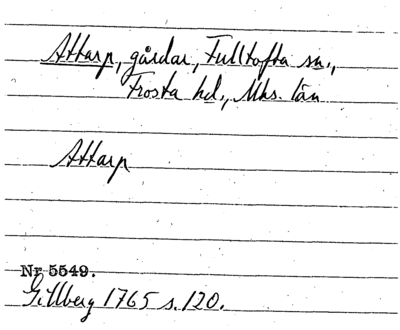 Attarp, gårdar, Fulltofta sn.,
Frosta hd., Mhs. län
Attarp
Nr 5549.
Gillberg 1765 s. 120.